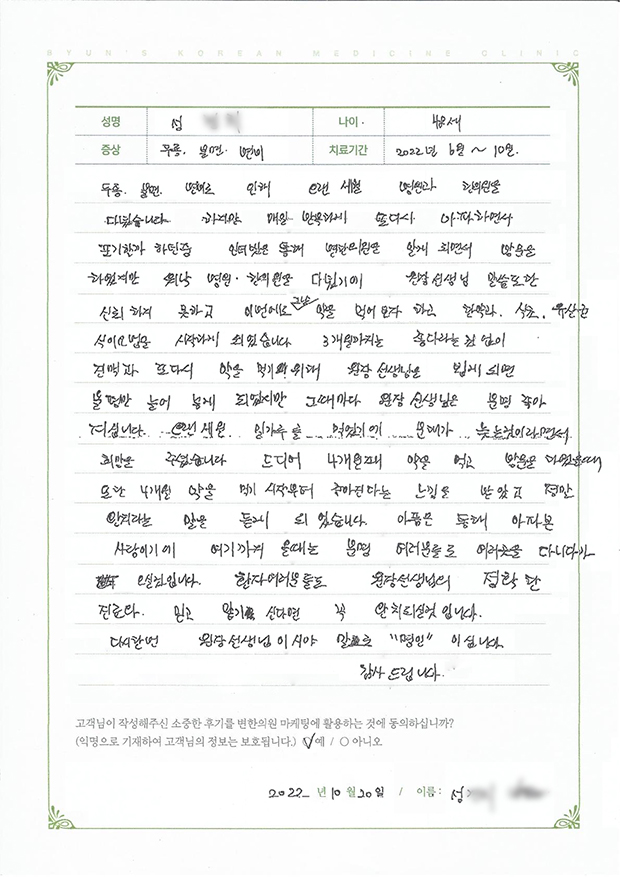 BYUN'S KOREAN MEDICINE CLINIC
성명 섬 나이 · 48세
증상 두통. 불면. 변비 치료기간 2022년 6월 ~ 10월.
불면. 변비로 인해 오랜 세월 병원과 한의원을
다녔습니다. 하지만 매일 반복하게 또다시 아파하면서
포기할까 하던중 변한의원을 알게 되면서 방문을
하였지만 워낙 병원·한의원을 다녔기에 원장선생님 말씀또한
신뢰하지 못하고 이번에도 그냥 약을 먹어보자 하고 한약과. 식초. 유산균
식이요법을 시작하게 되었습니다 3개월까지는 좋다라는 것 없이
또다시 약을 먹기위해 원장선생님을 뵙게 되면
불평만 늘어 놓게 되었지만 그때마다 원장선생님은 분명 좋아
지십니다. 오랜세월 밀가루를 먹었기에 문제가 늦는것이라면서
희망을 주셨습니다 드디어 4개월째 약을 먹고 방문을 다녔을때
또한 4개월 약을 먹기 시작부터 좋아진다는 느낌을 받았고 정말
말을 듣게 되었습니다. 아픔은 통해 아파본
사람이기에 여기까지 올때는 분명 여러분들도 여러곳을 다니다가
오실것입니다. 환자여러분들도 원장선생님의 정확한
진료와. 믿고 맡기신다면 꼭 완치되실것입니다.
다시한번 원장선생님이시야 말로 "명인" 이십니다.
감사드립니다.
고객님이 작성해주신 소중한 후기를 변한의원 마케팅에 활용하는 것에 동의하십니까?
(익명으로 기재하여 고객님의 정보는 보호됩니다.) ✓예 / ○ 아니오
2022 년 10 월 20일 / 이름 : 섬